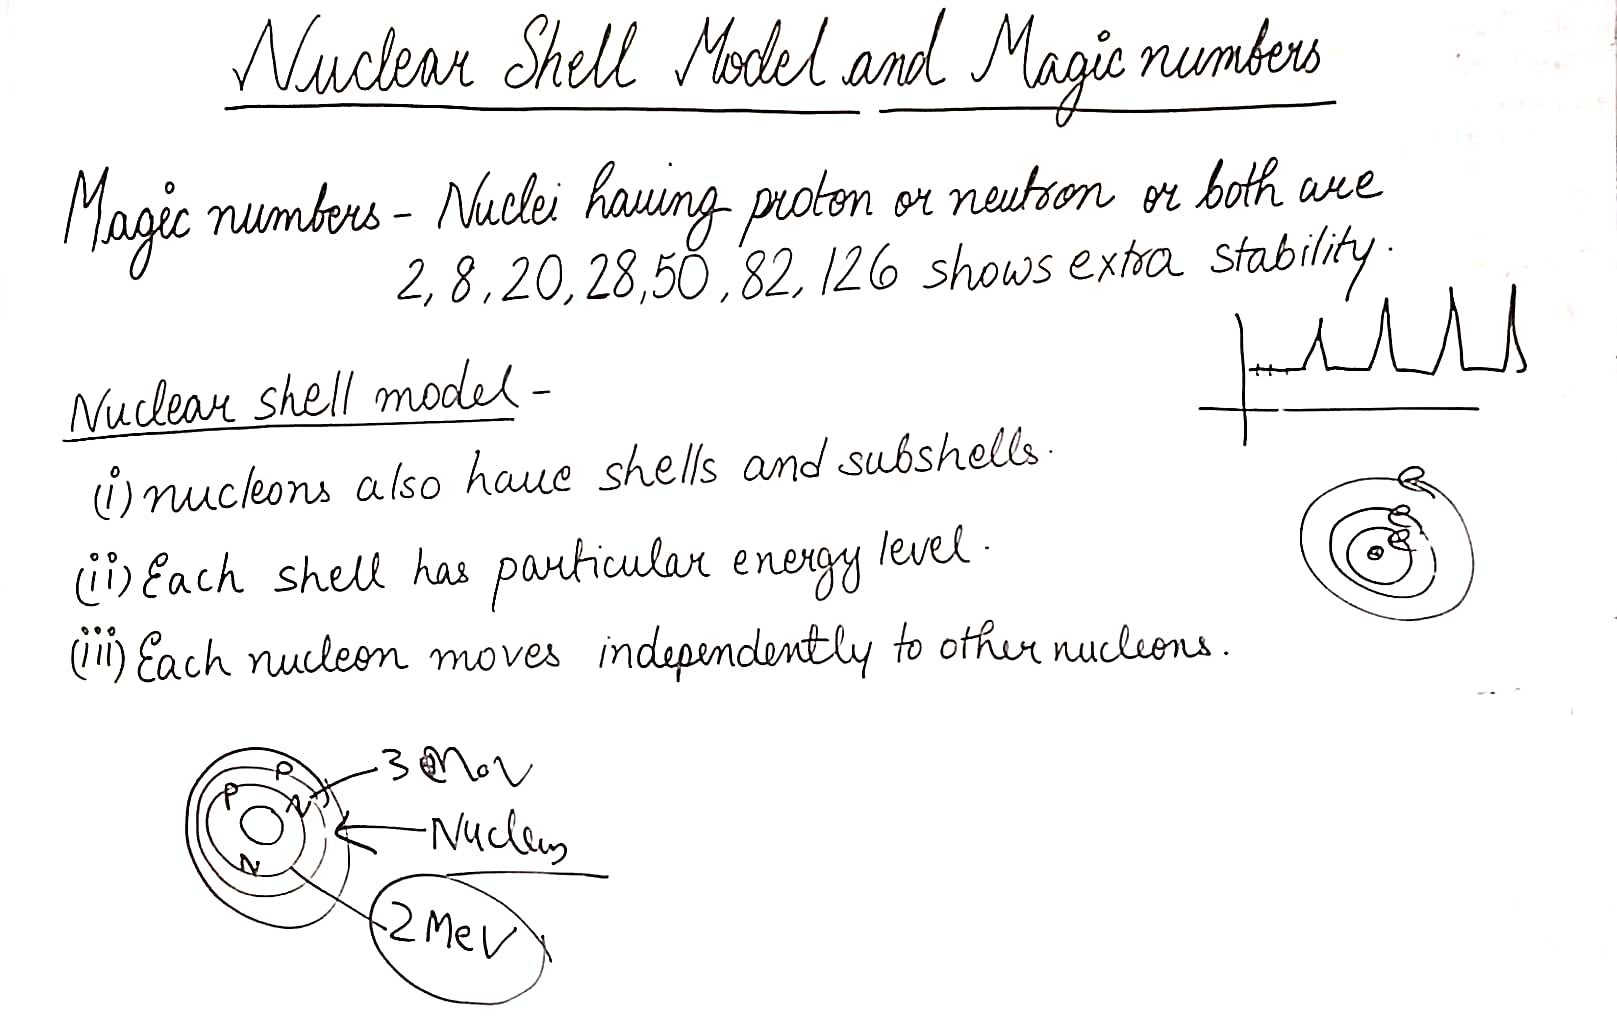 Nuclear Shell Model and Magic numbers
Magic numbers - Nuclei having proton or neutron or both are
2, 8, 20, 28, 50, 82, 126 shows extra stability.
Nuclear shell model -
(i) nucleons also have shells and subshells.
(ii) Each shell has particular energy level.
(iii) Each nucleon moves independently to other nucleons.
P
P
N
N
3 MeV
Nucleus
2 MeV